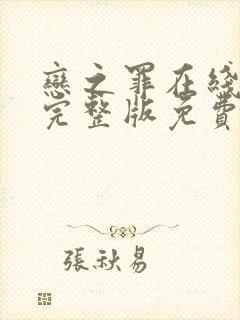 戀之罪在线
完整版免費
張秋易